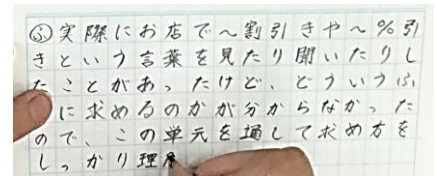 ㋫実際にお店で～割引きや～％引
きという言葉を見たり聞いたりし
たことがあったけど、どういうふ
に求めるのかが分からなかった
ので、この単元を通して求め方を
しっかり理